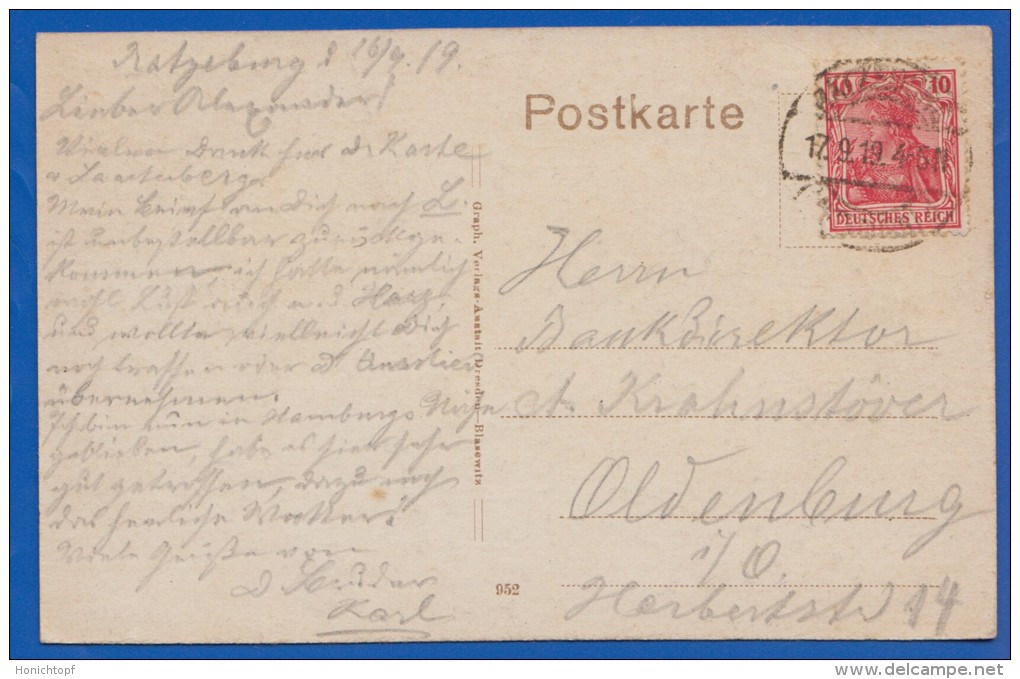 Ratzeburg d 16/9. 19.
Lieber Alexander!
Vielen Dank für d. Karte
v. Lauterberg.
Mein Brief an Dich nach L.
ist unbestellbar zurückge-
kommen, ich hatte nämlich
wohl Lust auch n. d. Harz,
und wollte vielleicht Dich
noch treffen oder D
übernehmen.
Ich bin nun in Hamburgs Nähe
geblieben, habe es hier sehr
gut getroffen, dazu noch
das herrliche Wetter!
Viele Grüße von
D. Bruder
Karl
Postkarte
10 10
17.9.19. 4-5N
DEUTSCHES REICH
Graph. Verlags-Anstalt, Dresden-Blasewitz
952
Herrn
Bankdirektor
A. Krahnstöver
Oldenburg
i/O.
Herbertstr 14
Honichtopf
www.delcampe.net